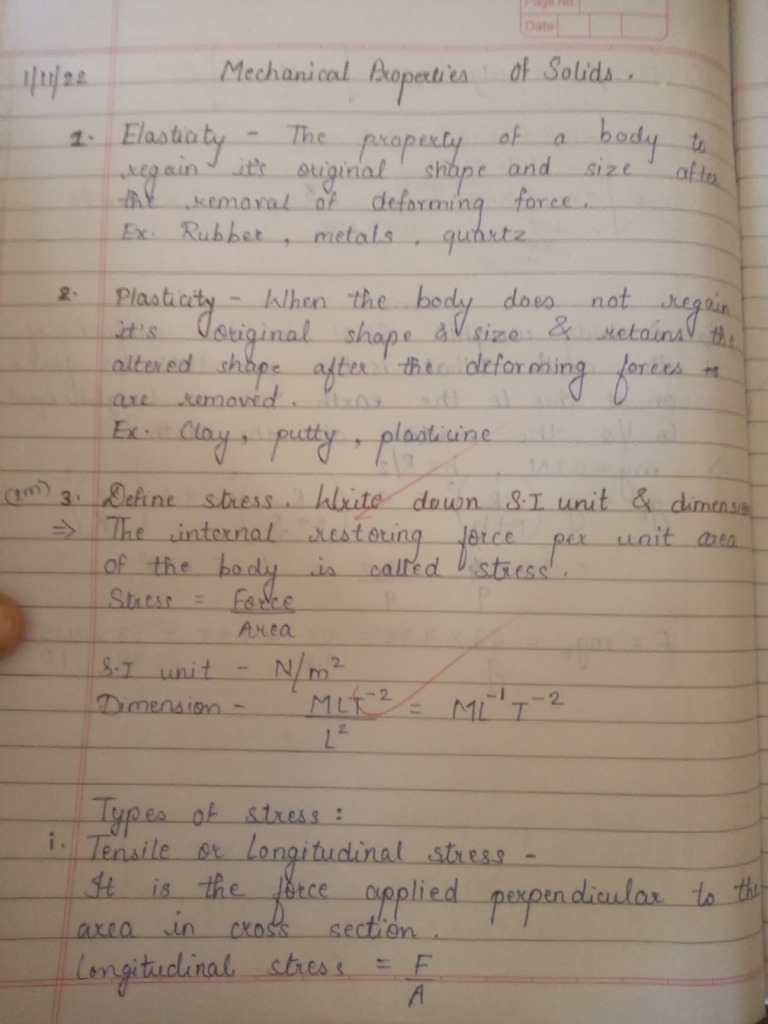 Page No.
Date
1/11/22
Mechanical Properties of Solids.
1. Elasticity - The property of a body to
regain it's original shape and size after
the removal of deforming force.
Ex. Rubber, metals, quartz
2. Plasticity - When the body does not regain
it's original shape & size & retains the
altered shape after the deforming forces
are removed.
Ex. Clay, putty, plasticine
3. Define stress. Write down S.I unit & dimension
⇒ The internal restoring force per unit area
of the body is called stress.
Stress = Force
Area
S.I unit - N/m²
Dimension - MLT⁻² = ML⁻¹T⁻²
L²
Types of stress:
i. Tensile or Longitudinal stress -
It is the force applied perpendicular to the
area in cross section.
Longitudinal stress = F
A